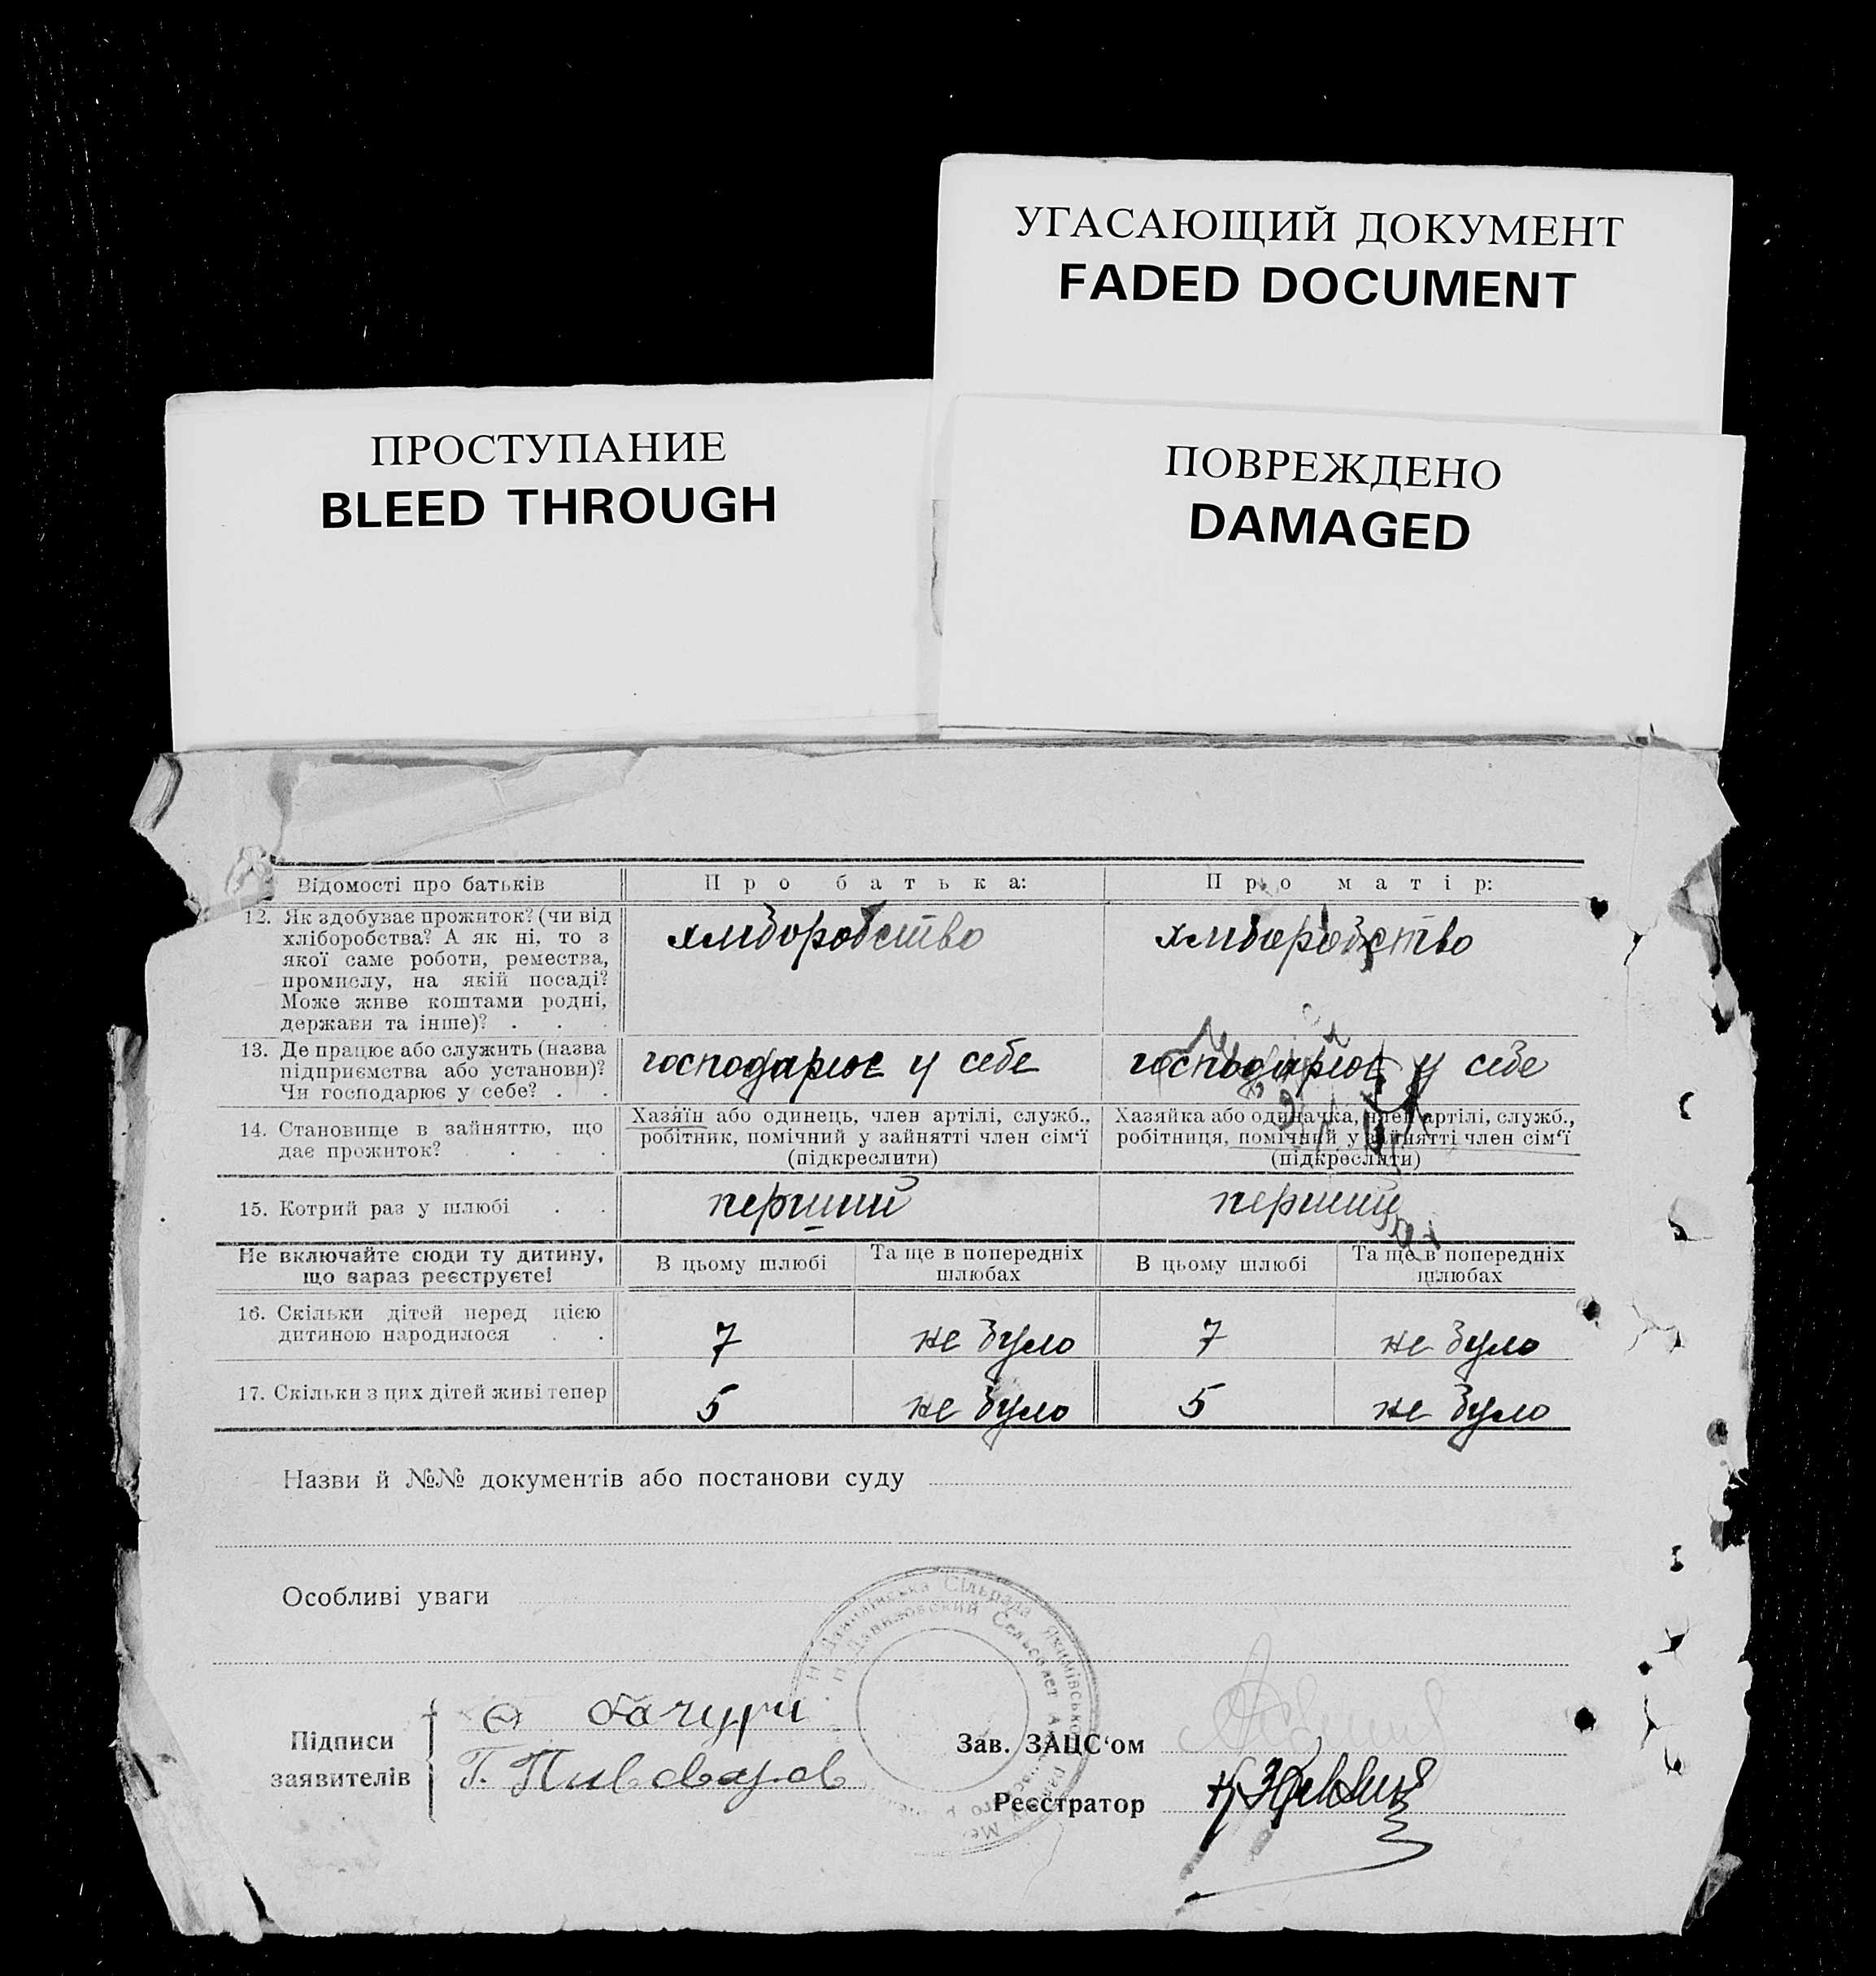 УГАСАЮЩИЙ ДОКУМЕНТ
FADED DOCUMENT
ПРОСТУПАНИЕ
BLEED THROUGH
ПОВРЕЖДЕНО
DAMAGED
Відомості про батьків
Про батька:
Про матір:
12. Як здобуває прожиток? (чи від
хліборобства? А як ні, то з
якої саме роботи, ремества,
промислу, на якій посаді?
Може живе коштами родні,
держави та інше)? . . .
хліборобство
хліборобство
13. Де працює або служить (назва
підприємства або установи)?
Чи господарює у себе? . .
господарює у себе
господарює у себе
14. Становище в зайняттю, що
дає прожиток? . . . .
Хазяїн або одинець, член артілі, служб.,
робітник, помічний у зайнятті член сім'ї
(підкреслити)
Хазяйка або одиначка, член артілі, служб.,
робітниця, помічний у зайнятті член сім'ї
(підкреслити)
15. Котрий раз у шлюбі . .
перший
перший
Не включайте сюди ту дитину,
що зараз реєструєте!
В цьому шлюбі
Та ще в попередніх
шлюбах
В цьому шлюбі
Та ще в попередніх
шлюбах
16. Скільки дітей перед цією
дитиною народилося . .
7
не було
7
не було
17. Скільки з цих дітей живі тепер
5
не було
5
не було
Назви й №№ документів або постанови суду
Особливі уваги
Сільрада
Сельсовет
Підписи
заявителів
Г. Пивоваров
Зав. ЗАЦС'ом
Реєстратор